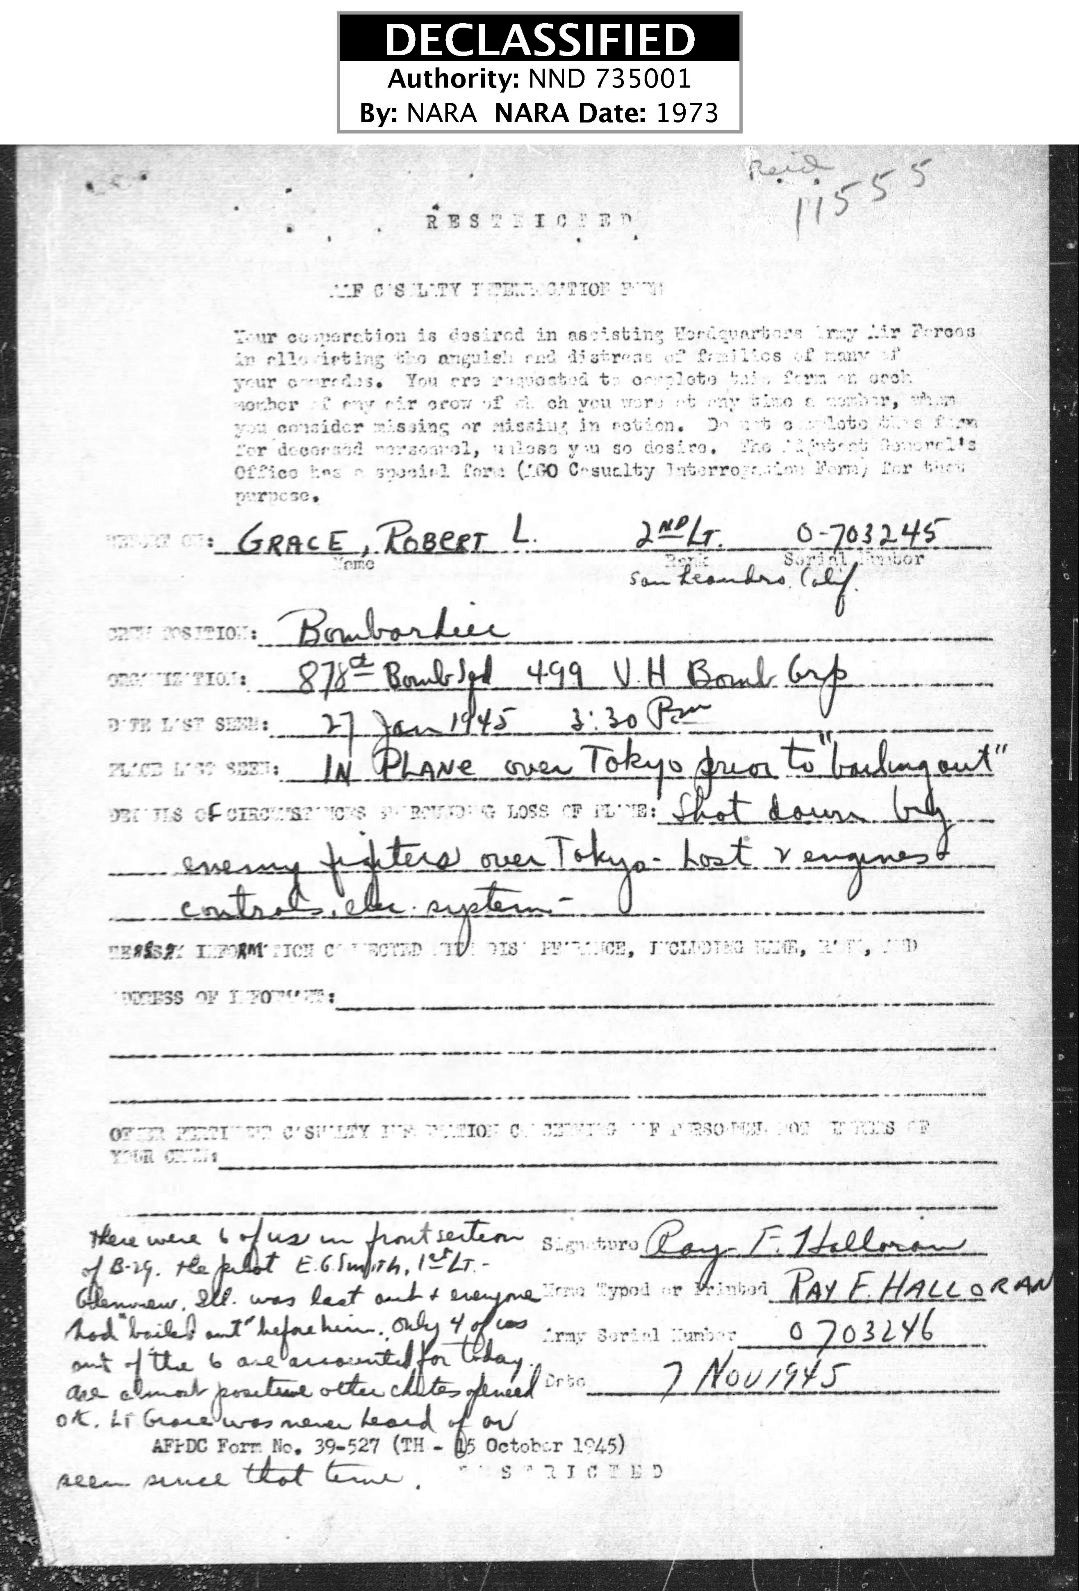 DECLASSIFIED
Authority: NND 735001
By: NARA NARA Date: 1973
Reid
11555
RESTRICTED
AAF CASUALTY INTERROGATION FORM
Your cooperation is desired in assisting Headquarters Army Air Forces
in alleviating the anguish and distress of families of many of
your comrades. You are requested to complete this form on each
member of any air crew of which you were at any time a member, whom
you consider missing or missing in action. Do not complete this form
for deceased personnel, unless you so desire. The Adjutant General's
Office has a special form (AGO Casualty Interrogation Form) for that
purpose.
REPORT ON: GRACE, ROBERT L. 2ND LT. O-703245
Name Rank Serial Number
San Leandro, Calif.
CREW POSITION: Bombardier
ORGANIZATION: 878th Bomb Sqd 499 V.H Bomb Grp
DATE LAST SEEN: 27 Jan 1945 3:30 Pm
PLACE LAST SEEN: IN PLANE over Tokyo prior to "bailing out"
DETAILS OF CIRCUMSTANCES SURROUNDING LOSS OF PLANE: Shot down by
enemy fighters over Tokyo - Lost 2 engines &
controls, elec. system -
INFORMATION CONNECTED WITH DISAPPEARANCE, INCLUDING NAME, RANK, AND
ADDRESS OF INFORMANT:
OTHER PERTINENT CASUALTY INFORMATION CONCERNING AAF PERSONNEL NOT MEMBERS OF
YOUR CREW:
There were 6 of us in front section
of B-29. The pilot E.G. Smith, 1st LT. -
Glenview, Ill. was last out & everyone
had "bailed out" before him. Only 4 of us
out of the 6 are accounted for today.
are almost positive other chutes opened
OK. Lt Grace was never heard of or
seen since that time.
Signature Ray F. Halloran
Name Typed or Printed RAY F. HALLORAN
Army Serial Number 0 703246
Date 7 NOV 1945
AFPDC Form No. 39-527 (TH - 15 October 1945)
RESTRICTED